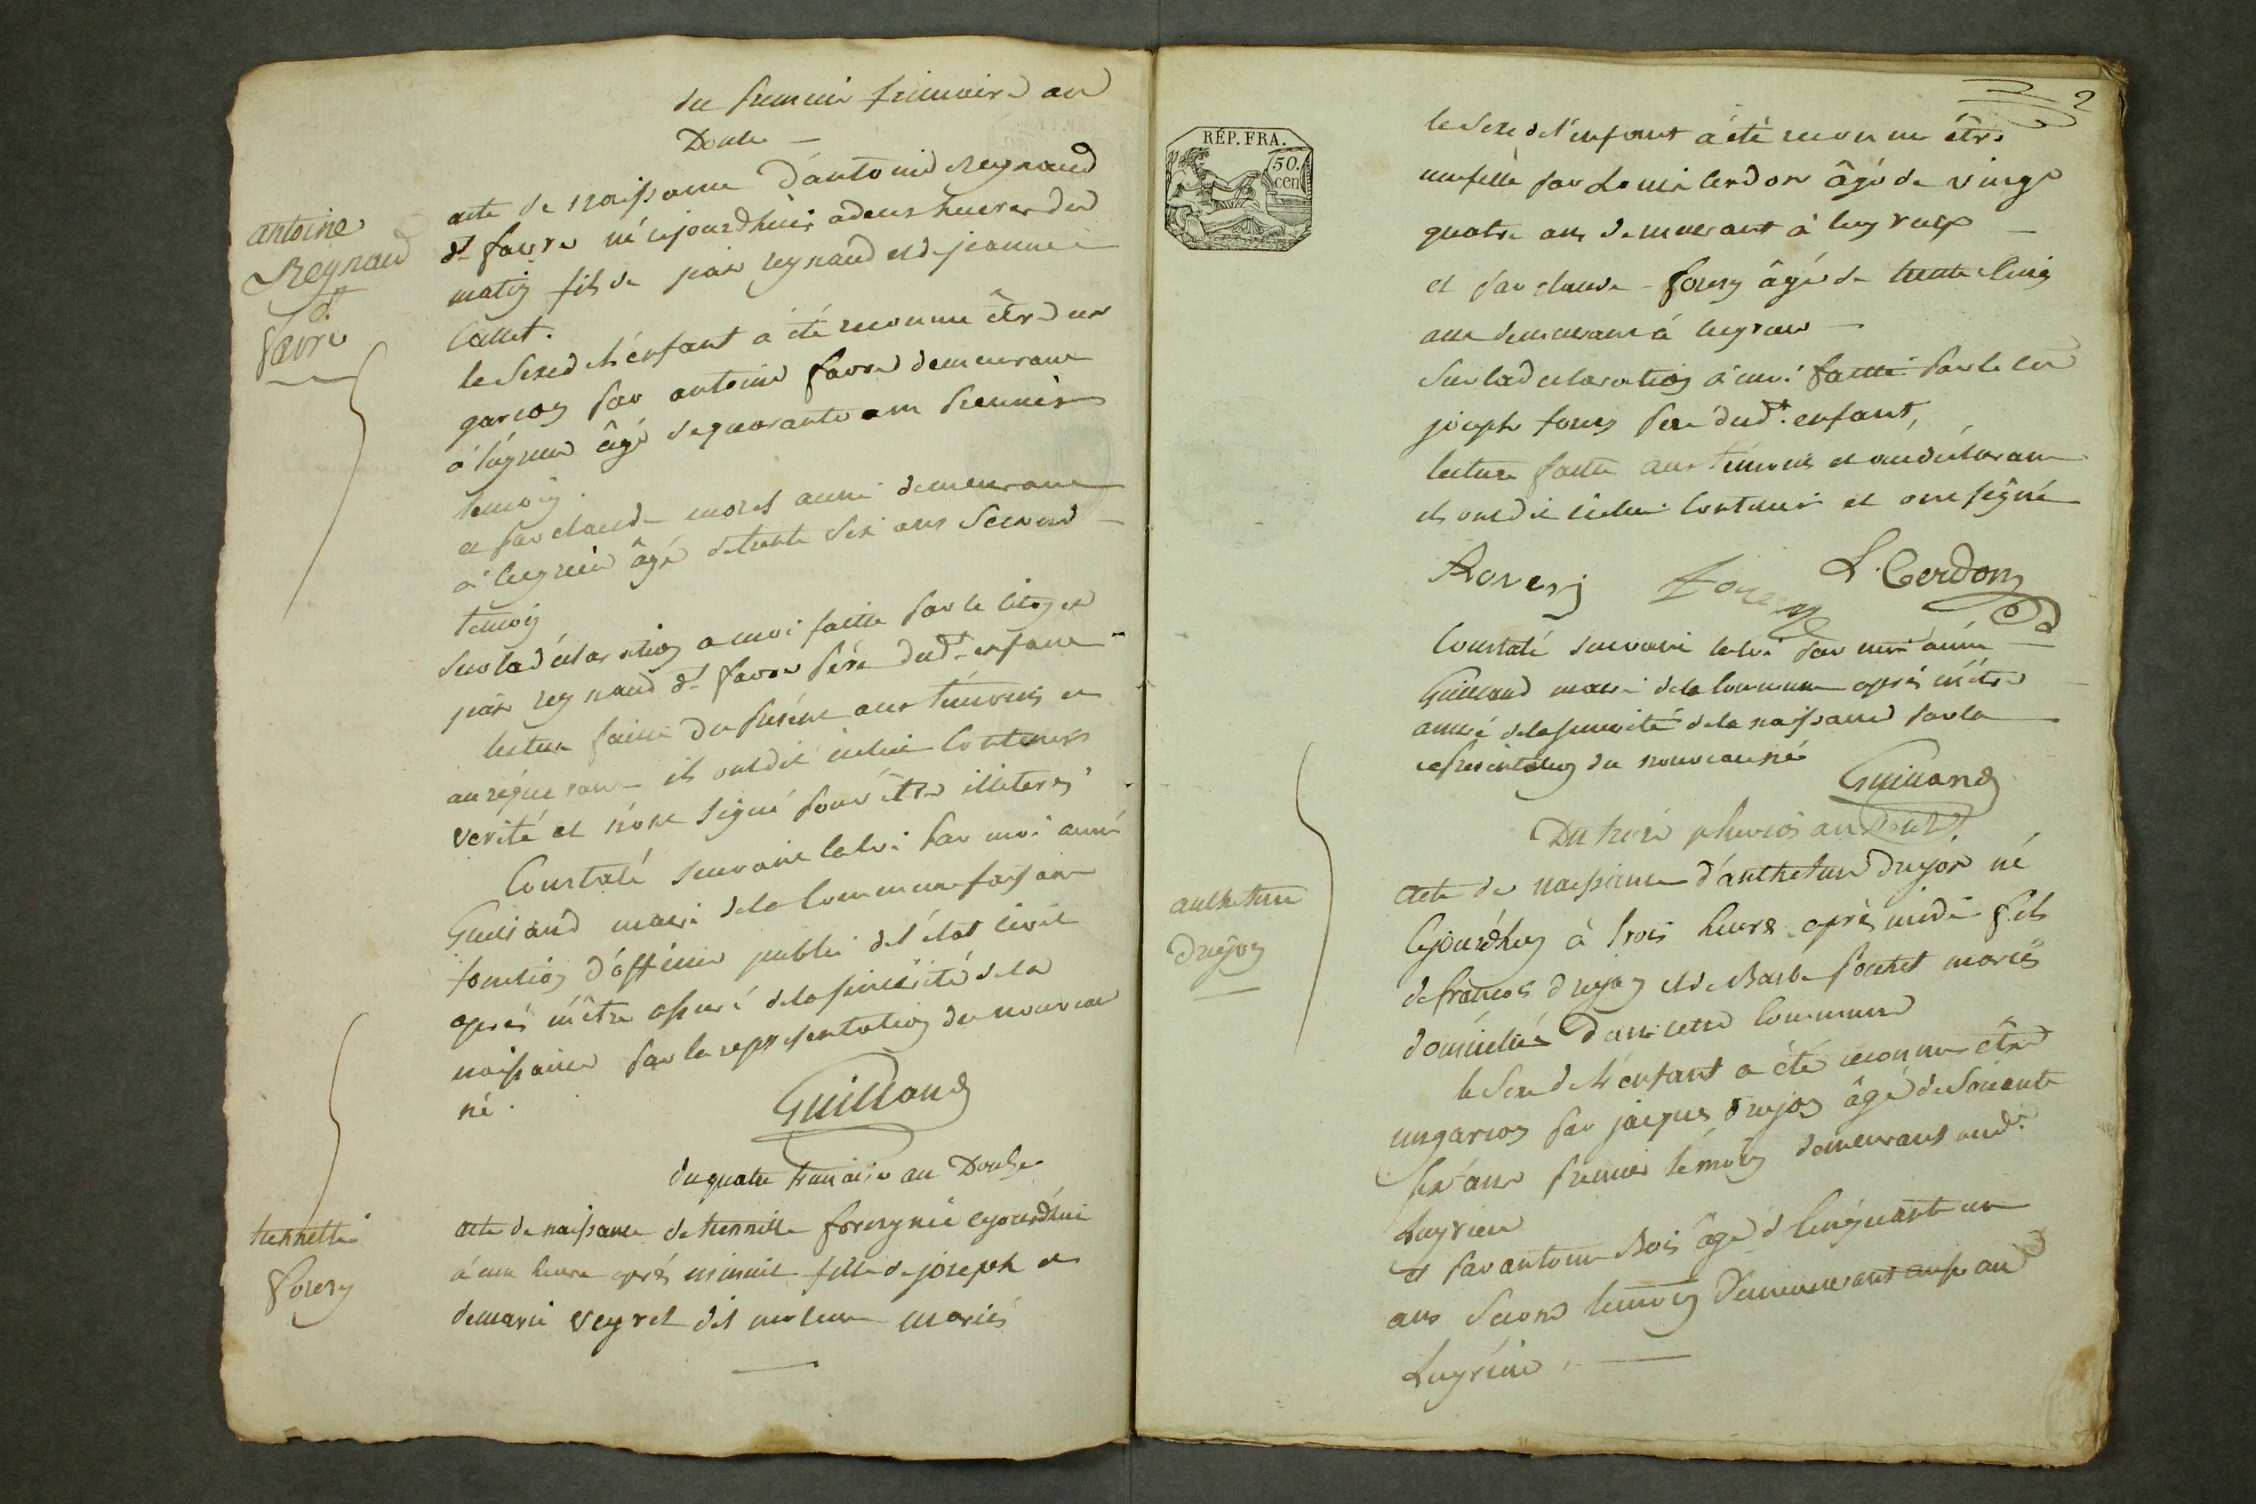 du premier frimaire an
Douze
antoine
Reynaud
dt
favre
acte de naissance d'antoine Reynaud
dt favre né cejourdhuis a deux heures du
matin fils de reynaud et de jeanne
Callet.
le sexe de l'enfant a été reconnu être un
garcon par antoine favre demeurant
à âgé de quarante ans premier
temoin.
et par claude moret aussi demeurant
à âgé de trente six ans second
temoin
sur la déclaration a moi faitte par le citoyen
reynaud dt favre père dudt enfant
lecture faitte du présent aux témoins et
au réquérant ils ont dit icelui contenir
verité et n'ont signé pour être illiterés
Constaté suivant la loi par moi aimé
Guilland maire de la commune faisant
fonction d'officier public de l'état civil
après m'être assuré de la sincérité de la
naissance par la representation du nouveau
né.
Guilland
du quatre frimaire an Douze
tiennette
forery
acte de naissance de tiennette forery née cejourdhui
à une heure après minuit fille de joseph et
de marie veyret dit mariés
2
RÉP. FRA.
50.
cen
le sexe de l'enfant à été reconnu être
une fille par Louis cerdon âgé de vingt
quatre ans demeurant à
et par claude forery âgé de trente cinq
ans demeurant à
sur la declaration à moi faitte par le cen
joseph forery père dudt enfant,
lecture faitte aux témoins et au déclarant
ils ont dit icelui contenir et ont signé
L. Cerdon
Constaté suivant la loi par moi aimé
Guilland maire de la commune après m'être
assuré de la sincérité de la naissance par la
representation du nouveau né
Guilland
Du trois pluvios an douze.
anthelme
drujon
acte de naissance d'anthelme drujon né
cejourdhuy à trois heures après midi fils
de françois drujon et de Barbe pochet mariés
domicilié dans cette commune
le sexe de l'enfant a été reconnu être
un garcon par jacques drujon âgé de soixante
six ans premier témoin demeurant audt
Luyrieu
et par antoine Bois âgé de cinquante un
ans second temoin demeurant aussi audt
Luyrieu.